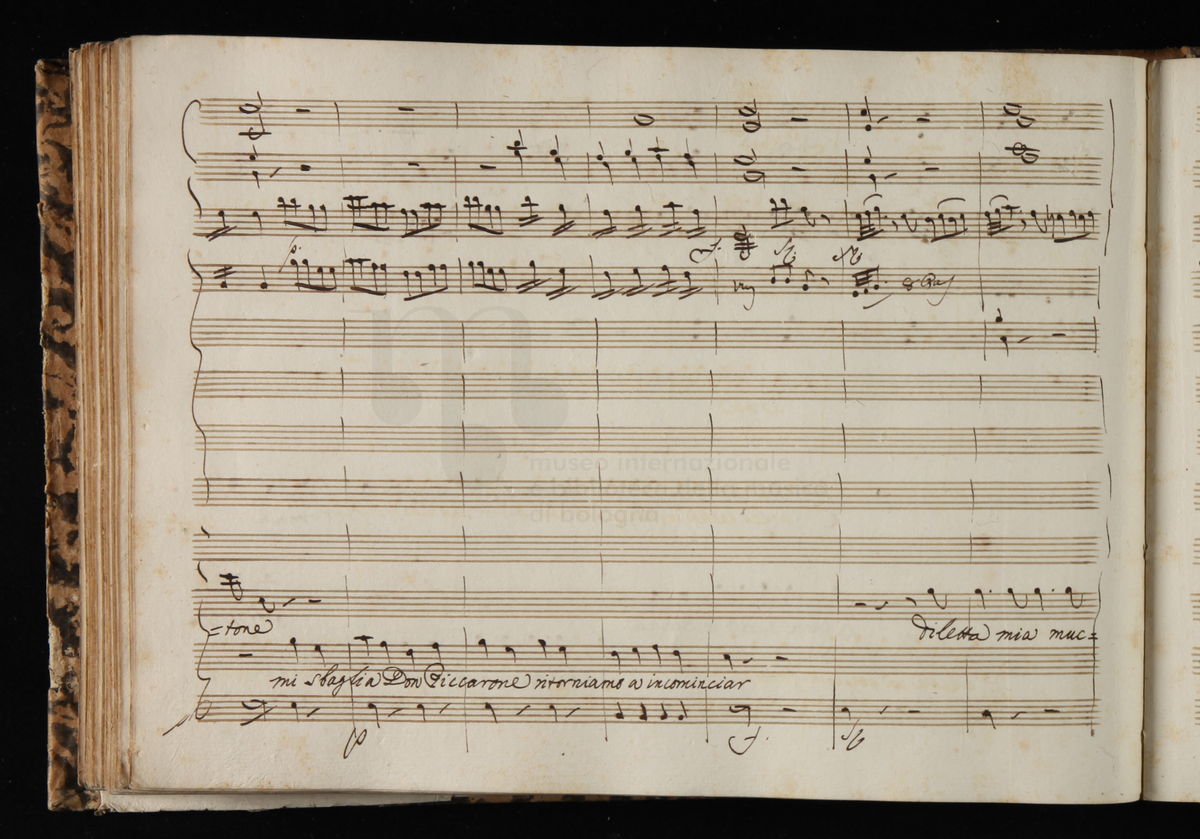 p.
f.
8va
museo internazionale
e biblioteca della musica
di bologna
=tone
diletta mia muc=
mi sbaglia Don Piccarone ritorniamo a incominciar
p
f.